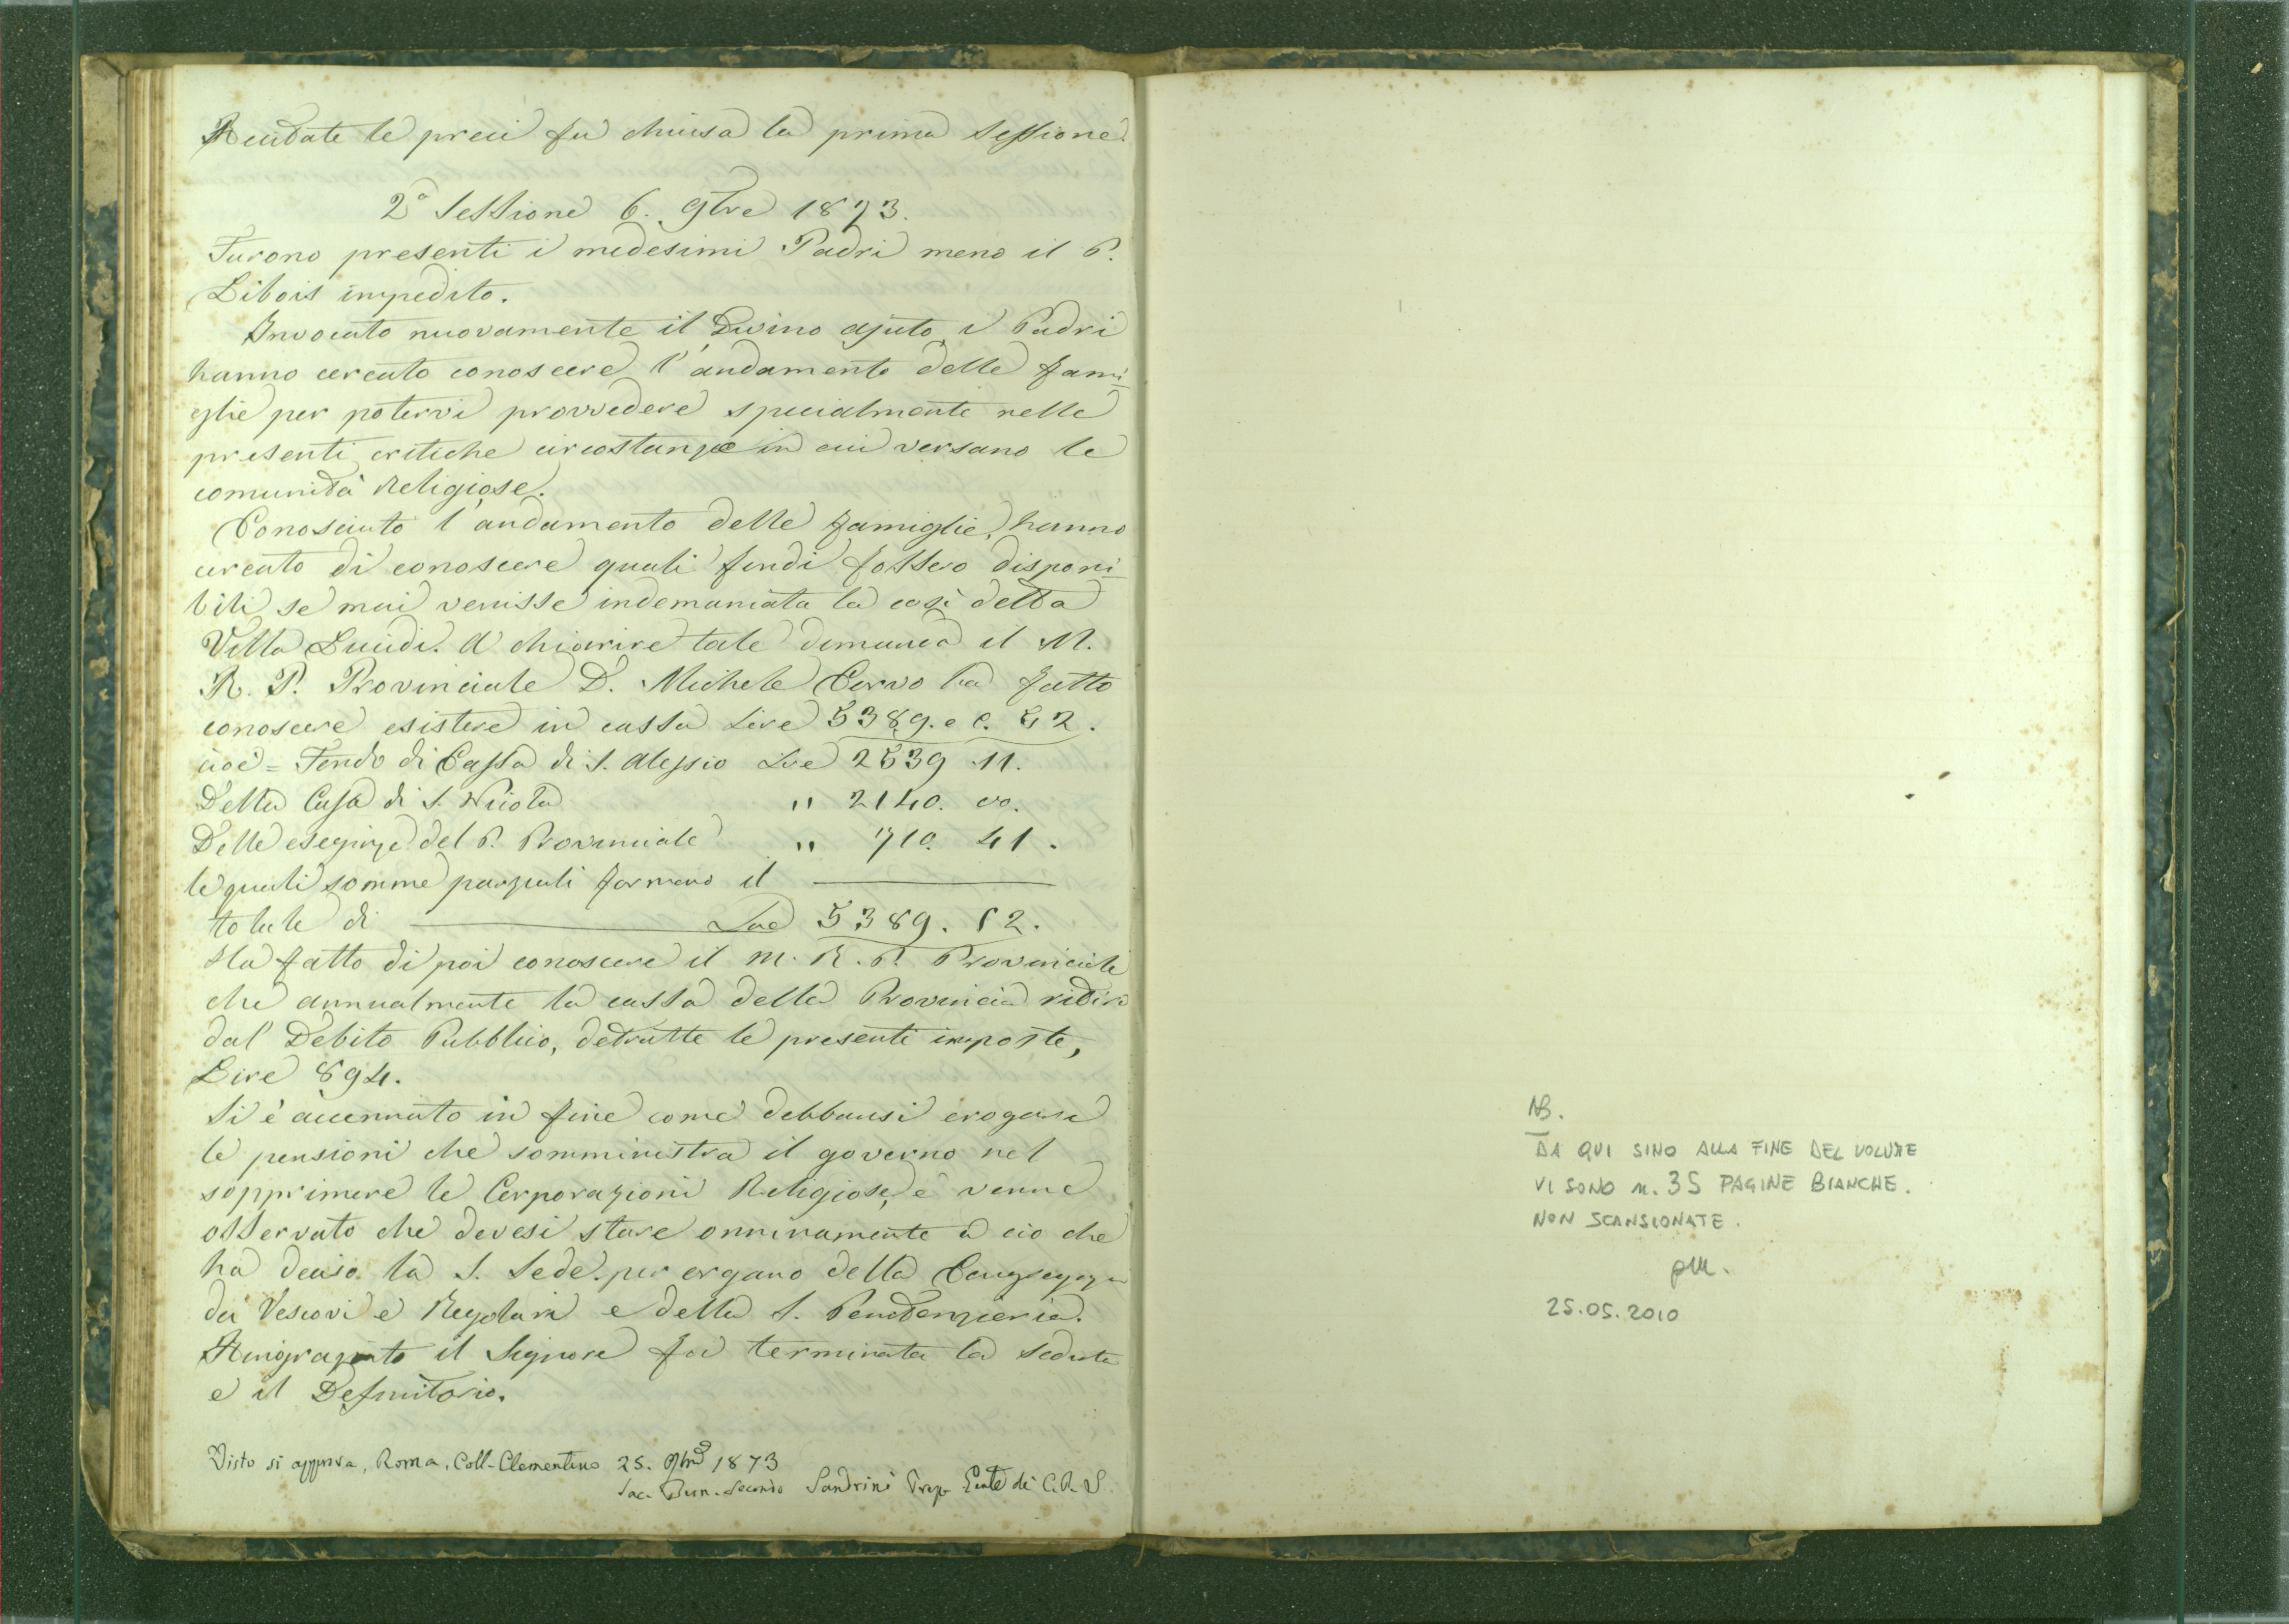 Recitate le preci fu chiusa la prima Sessione.
2ª Sessione 6. 9bre 1873.
Furono presenti i medesimi Padri meno il P.
Libois impedito.
Invocato nuovamente il Divino ajuto, i Padri
hanno cercato conoscere l'andamento delle fami-
glie per potervi provvedere specialmente nelle
presenti critiche circostanze in cui versano le
comunità Religiose.
Conosciuto l'andamento delle famiglie, hanno
cercato di conoscere quali fondi fossero disponi-
bili se mai venisse indemaniata la così detta
Villa Lucidi. A chiarire tale dimanda il M.
R. P. Provinciale D. Michele Cervo ha fatto
conoscere esistere in cassa Lire 5389. e c. 52.
cioè = Fondo di Cassa di S. Alessio Lire 2539 .11.
Della Casa di S. Nicola " 2140. 00.
Delle esegenze del P. Provinciale " 710. 41.
le quali somme parziali formano il
totale di Lire 5389. 52.
Ha fatto di poi conoscere il M. R. P. Provinciale
che annualmente la cassa della Provincia ritira
dal Debito Pubblico, detratte le presenti imposte,
Lire 894.
Si è accennato in fine come debbansi erogare
le pensioni che somministra il governo nel
sopprimere le Corporazioni Religiose, e venne
osservato che devesi stare onninamente a ciò che
ha deciso la S. Sede per organo della Congregaz
dei Vescovi e Regolari e della S. Penitenzieria.
Ringraziato il Signore fu terminata la seduta
e il Definitorio.
Visto si approva, Roma, Coll. Clementino 25. 9bre 1873
Sac. Bern. Secondo Sandrini Prep. Gente dei C.R.S.
NB.
DA QUI SINO ALLA FINE DEL VOLUME
VI SONO n. 35 PAGINE BIANCHE.
NON SCANSIONATE.
pm.
25.05.2010